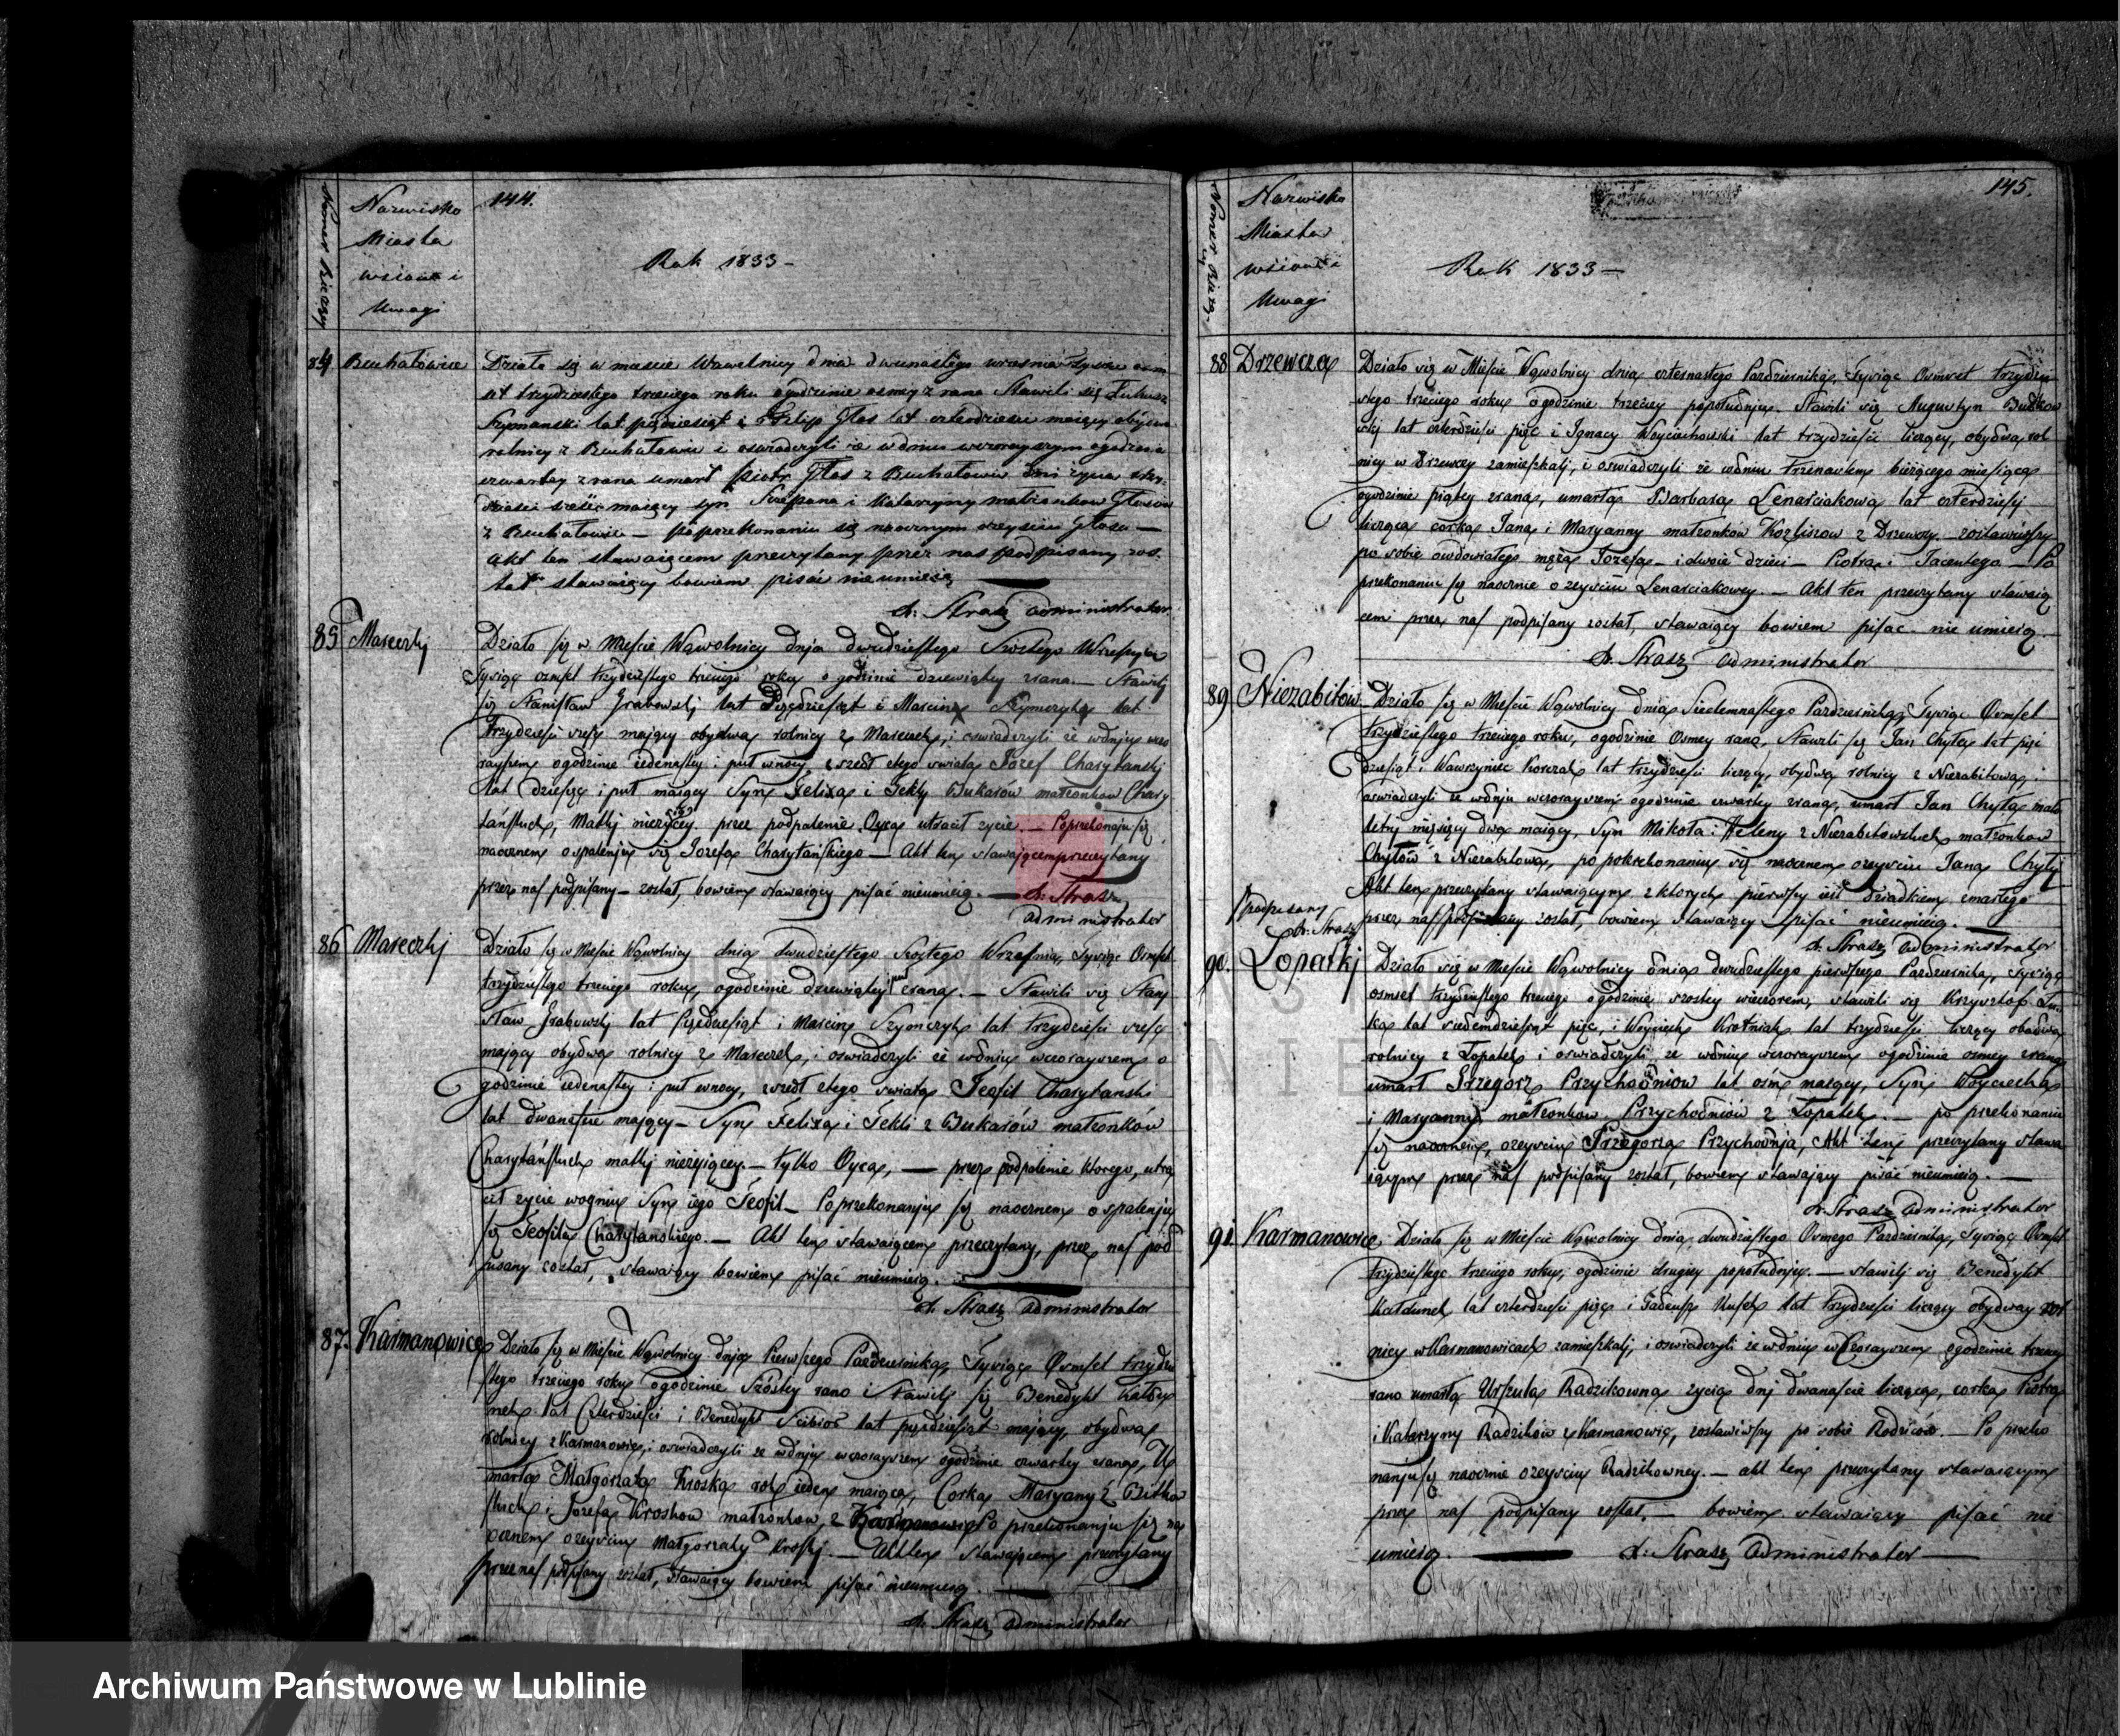 Numer Bierzący
Nazwisko
Miasta
wsiow i
Uwagi
144.
Rok 1833 -
84 Buchałowice Działo się w mieście Wąwolnicy dnia dwunastego wrzesnia tysiąc osm
set trzydziestego trzeciego roku ogodzinie osmey z rana Stawili się Łukasz
Szymanski lat pięcdziesiąt i Filip Głos lat czterdziesci maiący obydwa
rolnicy z Buchałowic i oswiadczyli ze w dniu wczorayszym ogodzinie
czwartey z rana umarł Piotr Głos z Buchałowic dni zycia
maiący syn Szczepana i Katarzyny małzonkow Głosow
z Buchałowic — po przekonaniu się naocznym o zeysciu Głosa —
Akt ten stawaiącem przeczytany przez nas podpisany zos-
tał stawaiący bowiem pisać nieumieią
X. Strasz administrator
85 Mareczki Działo się w Miescie Wąwolnicy dnia dwudziestego Szostego Wrzesnia
Tysiąc osmset trzydziestego trzeciego roku o godzinie dziewiątey zrana. — Stawili
się Stanisław Grabowski lat Pięcdziesiąt i Marcin Szymczyk lat
Trzydziesci szesć maiący obydwa rolnicy z Mareczek, i oswiadczyli ze wdniu wczo
rayszem ogodzinie iedenastey i puł wnocy, zszedł ztego swiata Józef Charytanski
lat dziesięć i puł maiący Syn Felixa i Tekly Bukarów małzonkow Chary
tańskich, Matki niezyiącey przez podpalenie Oyca utracił zycie — Poprzekonaniu się
naocznem o spaleniu się Jozefa Charytańskiego — Akt ten stawaiącem przeczytany
przez nas podpisany — został, bowiem stawaiący pisać nieumieią. — X. Strasz
administrator
86 Mareczki Działo się w Miescie Wąwolnicy dnia dwudziestego Szostego Wrzesnia, Tysiąc Osmset
trzydziestego trzeciego roku, ogodzinie dziewiątey zrana. — Stawili się Stani
sław Grabowski lat Pięcdziesiąt i Marcin Szymczyk lat trzydziesci szesć
maiący obydwa rolnicy z Mareczek, i oswiadczyli ze wdniu wczorayszem o
godzinie iedenastey i puł wnocy, zszedł ztego swiata Teofil Charytanski
lat dwanascie maiący — Syn Felixa i Tekli z Bukarów małzonków
Charytańskich matki niezyiącey. — tylko Oyca, — przez podpalenie ktorego, utra
cił zycie wogniu Syn iego Teofil — Poprzekonaniu się naocznem o spaleniu
się Teofila Charytanskiego. — Akt ten stawaiącem przeczytany, przez nas pod
pisany został, stawaiący bowiem pisać nieumieią. —
X. Strasz administrator
87. Karmanowice Działo się w Miescie Wąwolnicy dnia Pierwszego Pazdziernika, Tysiąc Osmset trzydzie
stego trzeciego roku ogodzinie Szóstey rano i Stawili się Benedykt Kałdu
nek lat Czterdziesci i Benedykt Scibior lat pięcdziesiąt maiący, obydwa
rolnicy z Karmanowic, i oswiadczyli ze wdniu wczorayszem ogodzinie czwartey zrana, U
marła Małgorzata Kroska rok ieden maiąca, Corka Maryany z
i Jozefa Kroskow małzonkow z Karmanowic Po przekonaniu się na
ocznem ozeysciu Małgorzaty Kroski. — Akt ten stawaiącem przeczytany
przez nas podpisany został, stawaiący bowiem pisać nieumieią. —
X. Strasz administrator
Numer Bieżą
Nazwisko
Miasta
wsiow i
Uwagi
145.
Rok 1833 —
88 Drzewcza Działo się w Miescie Wąwolnicy dnia czternastego Pazdziernika, Tysiąc Osmset trzydzie
stego trzeciego roku ogodzinie trzeciey popołudniu. Stawili się Augustyn Butkow
ski lat czterdziesci pięc i Ignacy Woyciechowski lat trzydziesci liczący, obydwa rol
nicy w Drzewczy zamieszkali, i oswiadczyli ze wdniu trzynastem biezącego miesiąca
ogodzinie piątey zrana, umarła Barbara Lenarciakowa lat czterdziesci
licząca corka Jana i Maryanny małzonkow Kozliszow z Drzewczy. zostawiwszy
po sobie owdowiałego męza Jozefa — i dwoie dzieci — Piotra i Jacentego — Po
przekonaniu się naocznie o zeysciu Lenarciakowey. — Akt ten przeczytany stawaią
cem przez nas podpisany został, stawaiący bowiem pisać nie umieią.
X. Strasz administrator
89 Niezabitow Działo się w Miescie Wąwolnicy dnia Siedemnastego Pazdziernika Tysiąc Osmset
trzydziestego trzeciego roku, ogodzinie Osmey rano, Stawili się Jan Chyła lat pięć
dziesiąt i Wawrzyniec Korczak lat trzydziesci liczący, obydwa rolnicy z Niezabitowa,
oswiadczyli ze wdniu wczorayszem ogodzinie czwartey zrana, umarł Jan Chyła mało
letni miesięcy dwa maiący, Syn Mikołaia i Heleny z Niezabitowskich małzonkow
Chyłów z Niezabitowa, po pokrzekonaniu się naocznem ozeysciu Jana Chyły
Akt ten przeczytany stawaiącym z ktorych pierwszy iest dziadkiem zmarłego
przez nas podpisany został, bowiem stawaiący pisać nieumieią. —
podpisany
X. Strasz
X. Strasz administrator
90. Łopatki Działo się w Miescie Wąwolnicy dnia dwudziestego pierwszego Pazdziernika, Tysiąc
osmset trzydziestego trzeciego ogodzinie szostey wieczorem, stawili się Krzysztof
lat siedemdziesiąt pięc, i Woyciech Krotniak lat trzydziesci liczący obadwa
rolnicy z Łopatek i oswiadczyli, ze wdniu wczorayszem ogodzinie osmey zrana
umarł Grzegorz Przychodniow lat osm maiący, Syn Woyciecha
i Maryanny małzonkow Przychodniów z Łopatek. — po przekonaniu
się naocznem, ozeysciu Grzegorza Przychodnia, Akt ten przeczytany stawa
iącym przez nas podpisany został, bowiem stawaiący pisać nieumieią. —
X. Strasz administrator
91. Karmanowice Działo się w Miescie Wąwolnicy dnia dwudziestego Osmego Pazdziernika, Tysiąc Osmset
trzydziestego trzeciego roku, ogodzinie drugiey popołudniu. — stawili się Benedykt
Kałdunek lat czterdziesci pięc i Tadeusz Kusek lat trzydziesci liczący obydway rol
nicy w Karmanowicach zamieszkali, i oswiadczyli ze wdniu wczorayszem ogodzinie trzeciey
rano umarła Urszula Radzikowna zycia dni dwanascie licząca, corka Piotra
i Katarzyny Radzików z Karmanowic, zostawiwszy po sobie Rodziców. — Po przeko
naniu się naocznie ozeysciu Radzikowney. — akt ten przeczytany stawaiącym
przez nas podpisany został. — bowiem stawaiący pisać nie
umieią. — X. Strasz administrator —
Archiwum Państwowe w Lublinie